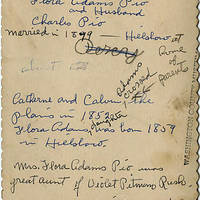 Flora Adams Pio
and Husband
Charles Pio
married in 1879 — Hillsboro at
home of
parents
Percy
Adams
crossed
Catherne and Calvin, the
plains in 1852
daughter
Flora Adams, was born 1859
in Hillsboro.
Mrs. Flora Adams Pio was
great aunt of Violet Pitmens Rush.
WASHINGTON COUNTY